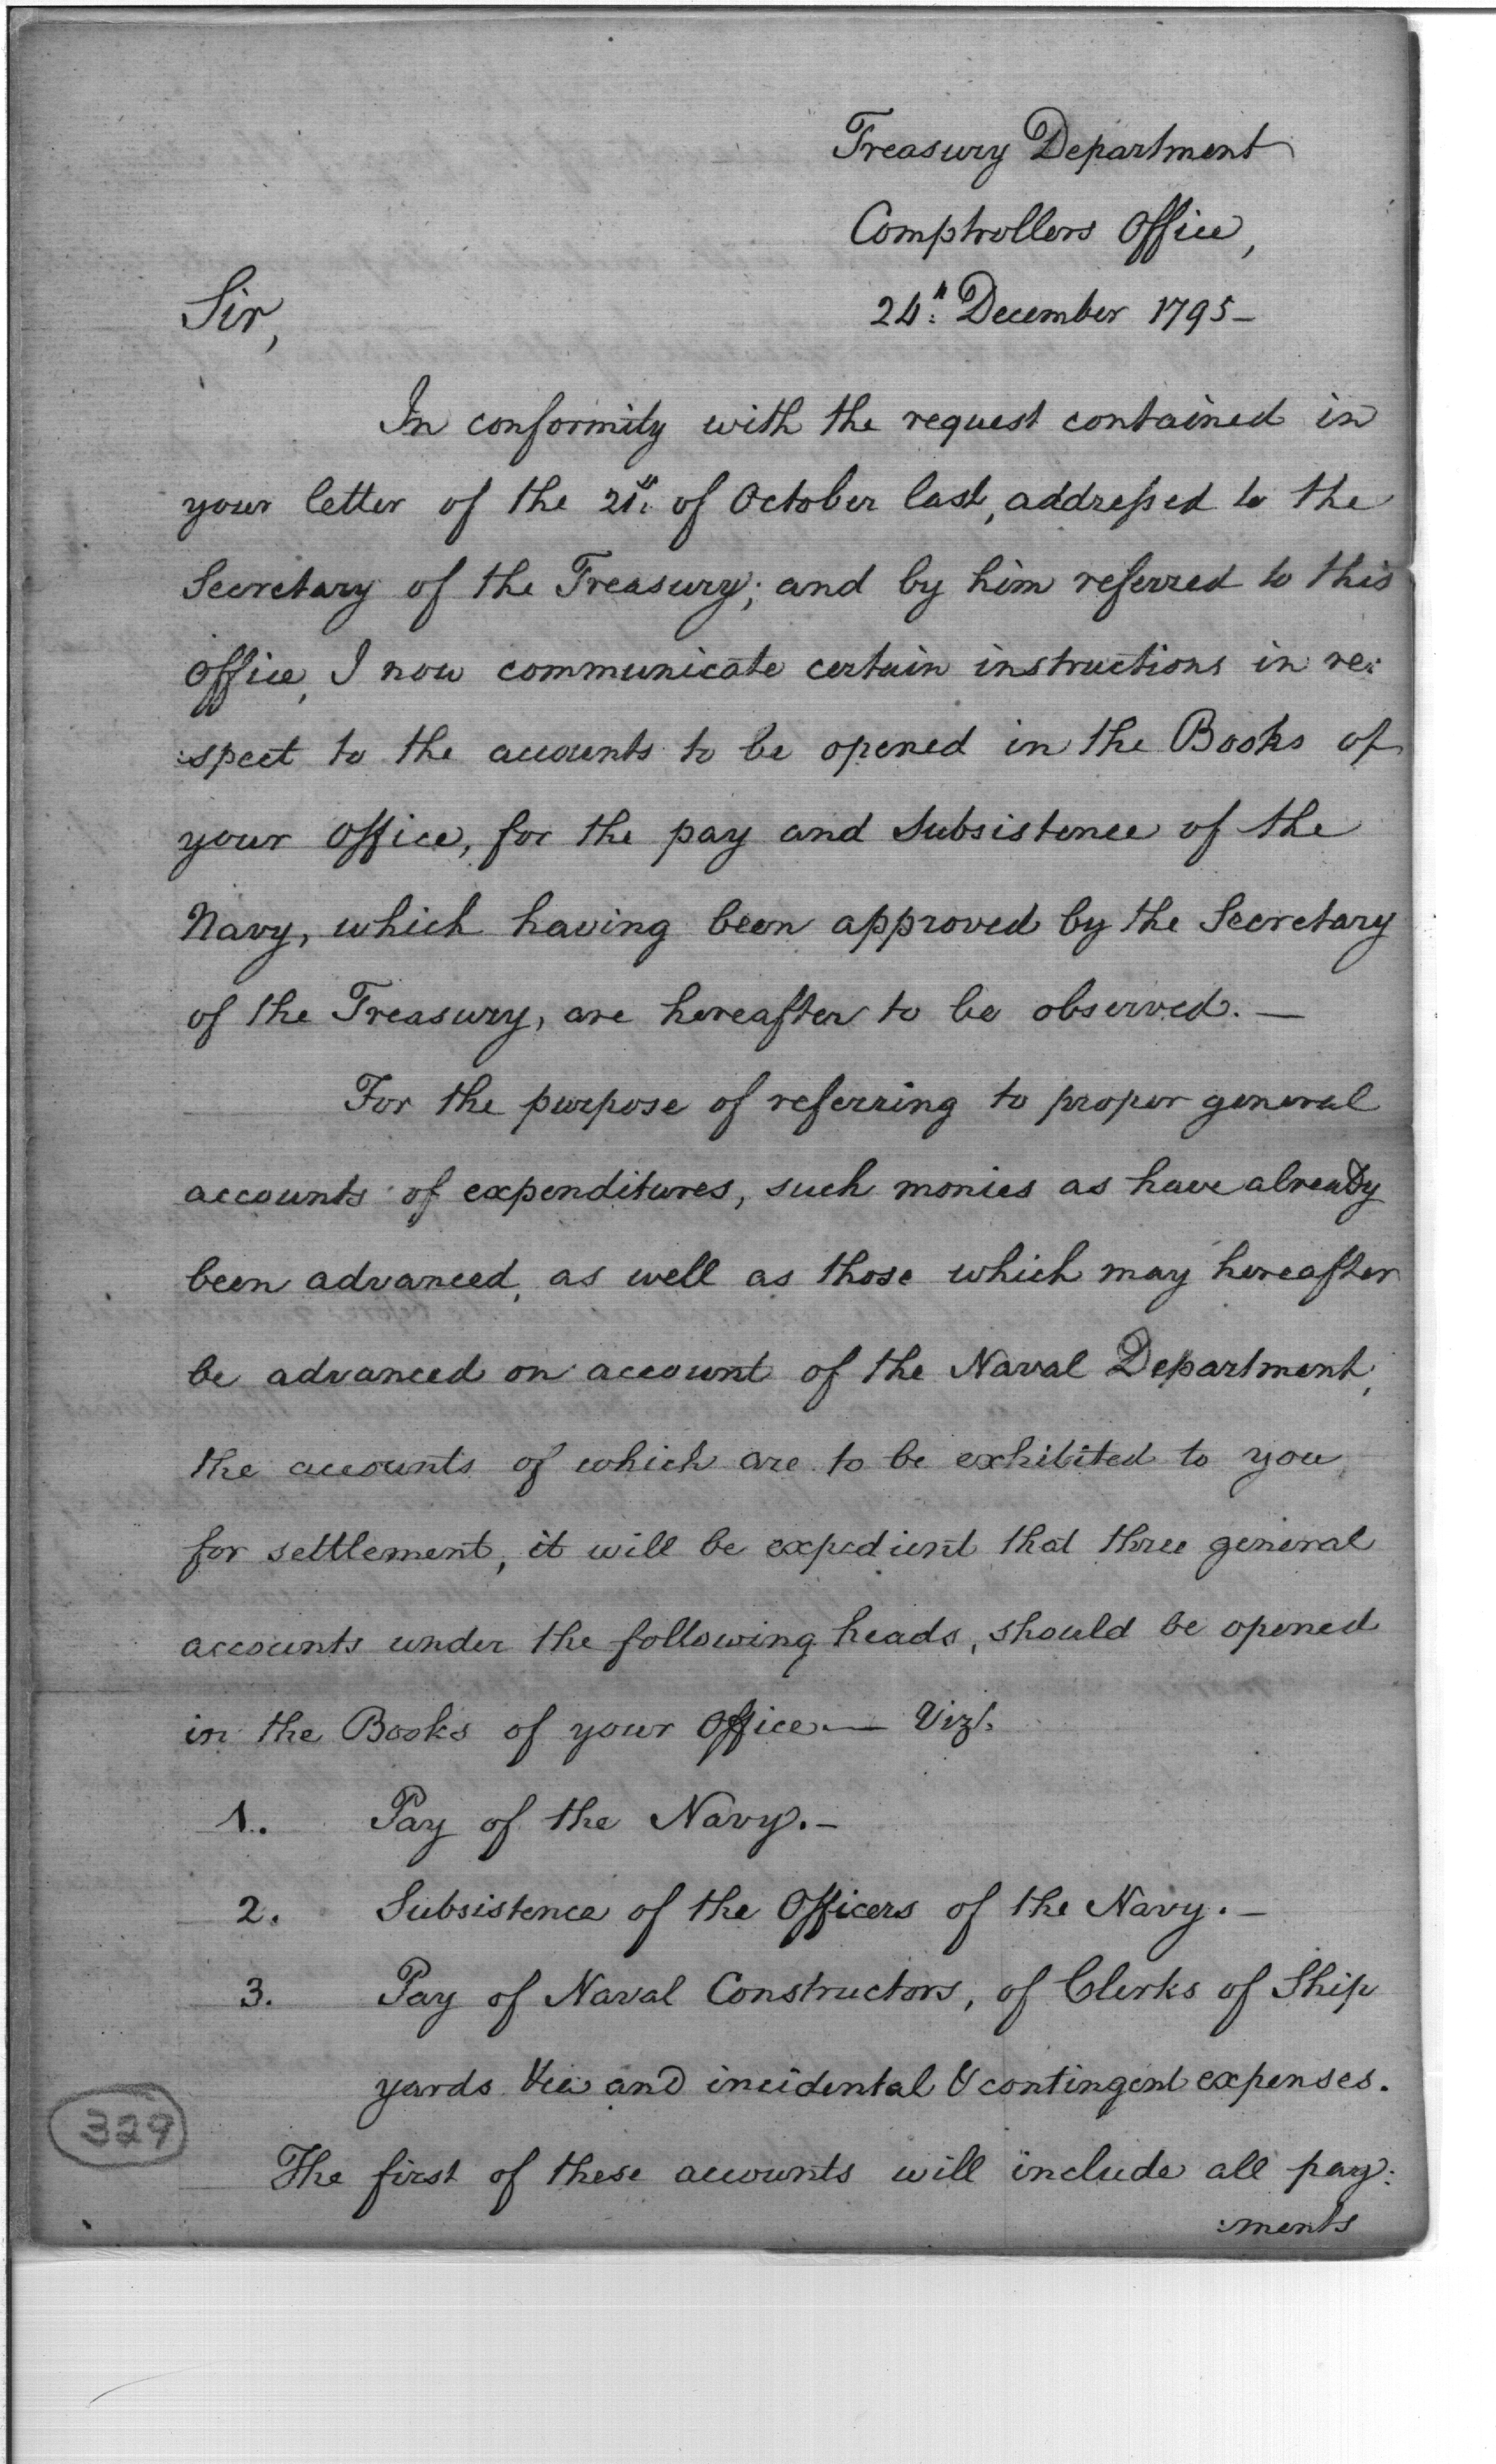 Treasury Department
Comptrollers Office,
24th December 1795-
Sir,
In conformity with the request contained in
your letter of the 21st of October last, addressed to the
Secretary of the Treasury; and by him referred to this
Office, I now communicate certain instructions in re:
:spect to the accounts to be opened in the Books of
your Office, for the pay and Subsistence of the
Navy, which having been approved by the Secretary
of the Treasury, are hereafter to be observed. —
For the purpose of referring to proper general
accounts of expenditures, such monies as have already
been advanced, as well as those which may hereafter
be advanced on account of the Naval Department,
the accounts of which are to be exhibited to you
for settlement, it will be expedient that three general
accounts under the following heads, should be opened
in the Books of your Office — Vizt.
1. Pay of the Navy.-
2. Subsistence of the Officers of the Navy.-
3. Pay of Naval Constructors, of Clerks of Ship
yards &ca and incidental & contingent expenses.
329
The first of these accounts will include all pay:
:ments